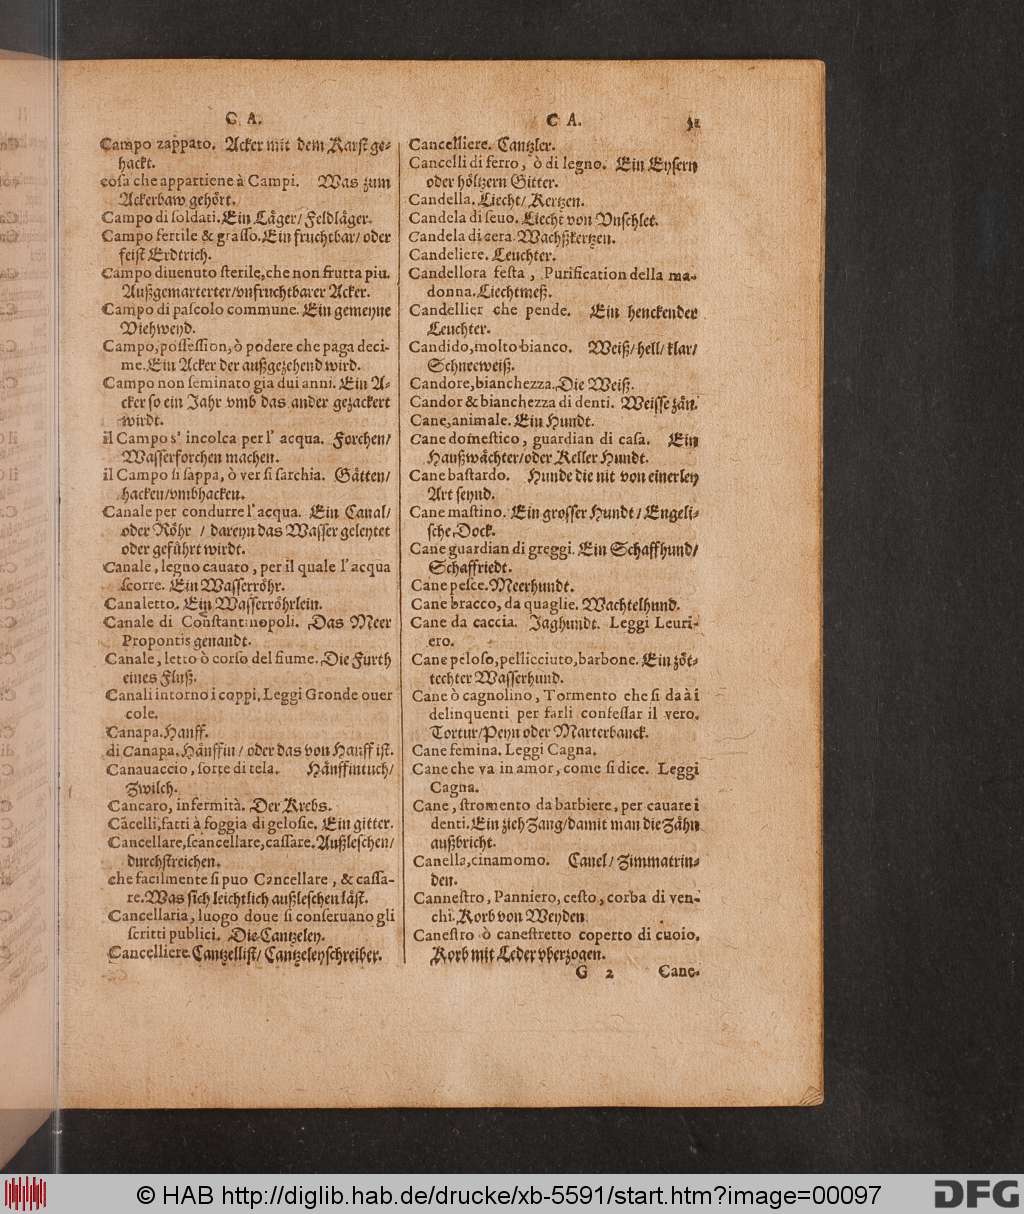 C A.
Campo zappato. Acker mit dem Karst ge-
hackt.
cosa che appartiene à Campi. Was zum
Ackerbaw gehört.
Campo di soldati. Ein Läger/ Feldläger.
Campo fertile & grasso. Ein fruchtbar/ oder
feist Erdtrich.
Campo diuenuto sterile, che non frutta piu.
Außgemarterter/ vnfruchtbarer Acker.
Campo di pascolo commune. Ein gemeyne
Viehweyd.
Campo, possession, ò podere che paga deci-
me. Ein Acker der außgezehend wird.
Campo non seminato gia dui anni. Ein A-
cker so ein Jahr vmb das ander gezackert
wirdt.
il Campo s' incolca per l' acqua. Forchen/
Wasserforchen machen.
il Campo si sappa, ò ver si sarchia. Gätten/
hacken/ vmbhacken.
Canale per condurre l' acqua. Ein Canal/
oder Röhr / dareyn das Wasser geleytet
oder geführt wirdt.
Canale, legno cauato, per il quale l' acqua
scorre. Ein Wasserröhr.
Canaletto. Ein Wasserröhrlein.
Canale di Constantinopoli. Das Meer
Propontis genandt.
Canale, letto ò corso del fiume. Die Furth
eines Fluß.
Canali intorno i coppi, Leggi Gronde ouer
cole.
Canapa. Hanff.
di Canapa. Hänffin/ oder das von Hanff ist.
Canauaccio, sorte di tela. Hänffintuch/
Zwilch.
Cancaro, infermità. Der Krebs.
Cãcelli, fatti à foggia di gelosie. Ein gitter.
Cancellare, scancellare, cassare. Außleschen/
durchstreichen.
che facilmente si puo Cancellare, & cassa-
re. Was sich leichtlich außleschen läst.
Cancellaria, luogo doue si conseruano gli
scritti publici. Die Cantzeley.
Cancelliere. Cantzellist/ Cantzeleyschreiber.
C A.
Cancelliere. Cantzler.
Cancelli di ferro, ò di legno. Ein Eysern
oder höltzern Gitter.
Candella. Liecht/ Kertzen.
Candela di seuo. Liecht von Vnschlet.
Candela di cera. Wachßkertzen.
Candeliere. Leuchter.
Candellora festa, Purification della ma-
donna. Liechtmeß.
Candellier che pende. Ein henckender
Leuchter.
Candido, molto bianco. Weiß/ hell/ klar/
Schneeweiß.
Candore, bianchezza. Die Weiß.
Candor & bianchezza di denti. Weisse zän.
Cane, animale. Ein Hundt.
Cane domestico, guardian di casa. Ein
Haußwächter/ oder Keller Hundt.
Cane bastardo. Hunde die nit von einerley
Art seynd.
Cane mastino. Ein grosser Hundt/ Engeli-
sche Dock.
Cane guardian di greggi. Ein Schaffhund/
Schaffriedt.
Cane pesce. Meerhundt.
Cane bracco, da quaglie. Wachtelhund.
Cane da caccia. Jaghundt. Leggi Leuri-
ero.
Cane peloso, pellicciuto, barbone. Ein zöt-
techter Wasserhund.
Cane ò cagnolino, Tormento che si da à i
delinquenti per farli confessar il vero.
Tortur/ Peyn oder Marterbanck.
Cane femina. Leggi Cagna.
Cane che va in amor, come si dice. Leggi
Cagna.
Cane, stromento da barbiere, per cauare i
denti. Ein ziehZang/ damit man die Zähn
außbricht.
Canella, cinamomo. Canel/ Zimmatrin-
den.
Cannestro, Panniero, cesto, corba di ven-
chi. Korb von Weyden
Canestro ò canestretto coperto di cuoio.
Korb mit Leder vberzogen.
G 2 Cane-
© HAB http://diglib.hab.de/drucke/xb-5591/start.htm?image=00097
DFG